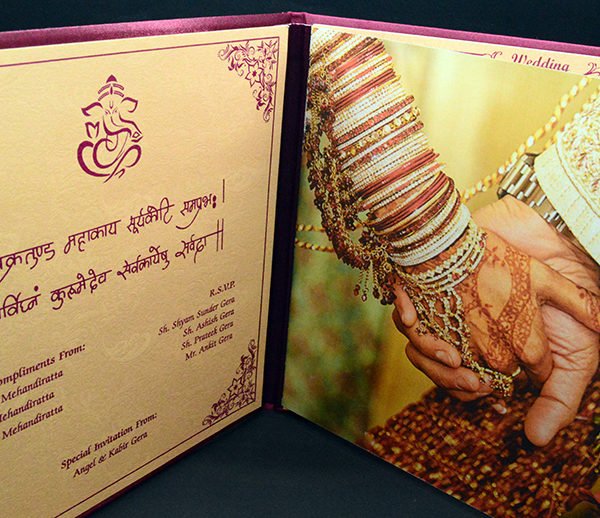 क्रतुण्ड महाकाय सूर्यकोटि समप्रभः।
र्विघ्नं कुरूमेदेव सर्वकार्येषु सर्वदा ॥
R.S.V.P.
Sh. Shyam Sunder Gera
Sh. Ashish Gera
Sh. Prateek Gera
Mr. Ankit Gera
ompliments From:
Mehandiratta
Mehandiratta
Mehandiratta
Special Invitation From:
Angel & Kabir Gera
Wedding